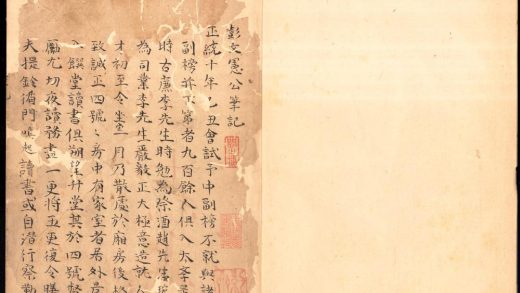 彭文憲公筆記
正統十年乙丑會試予中副榜不就與諸
副榜并下第者九百餘人俱入太學是
時古廉李先生時勉為祭酒趙先生
為司業李先生嚴毅正大極意造就人
才初至令坐一月乃散處於廂房後
致誠正四號々房中有家室者居外
饌堂讀書俱朔望升堂其於四號督
厲尤切夜讀務盡一更將五更復令膳
夫提鈴循門喚起讀書或自潛行察勤